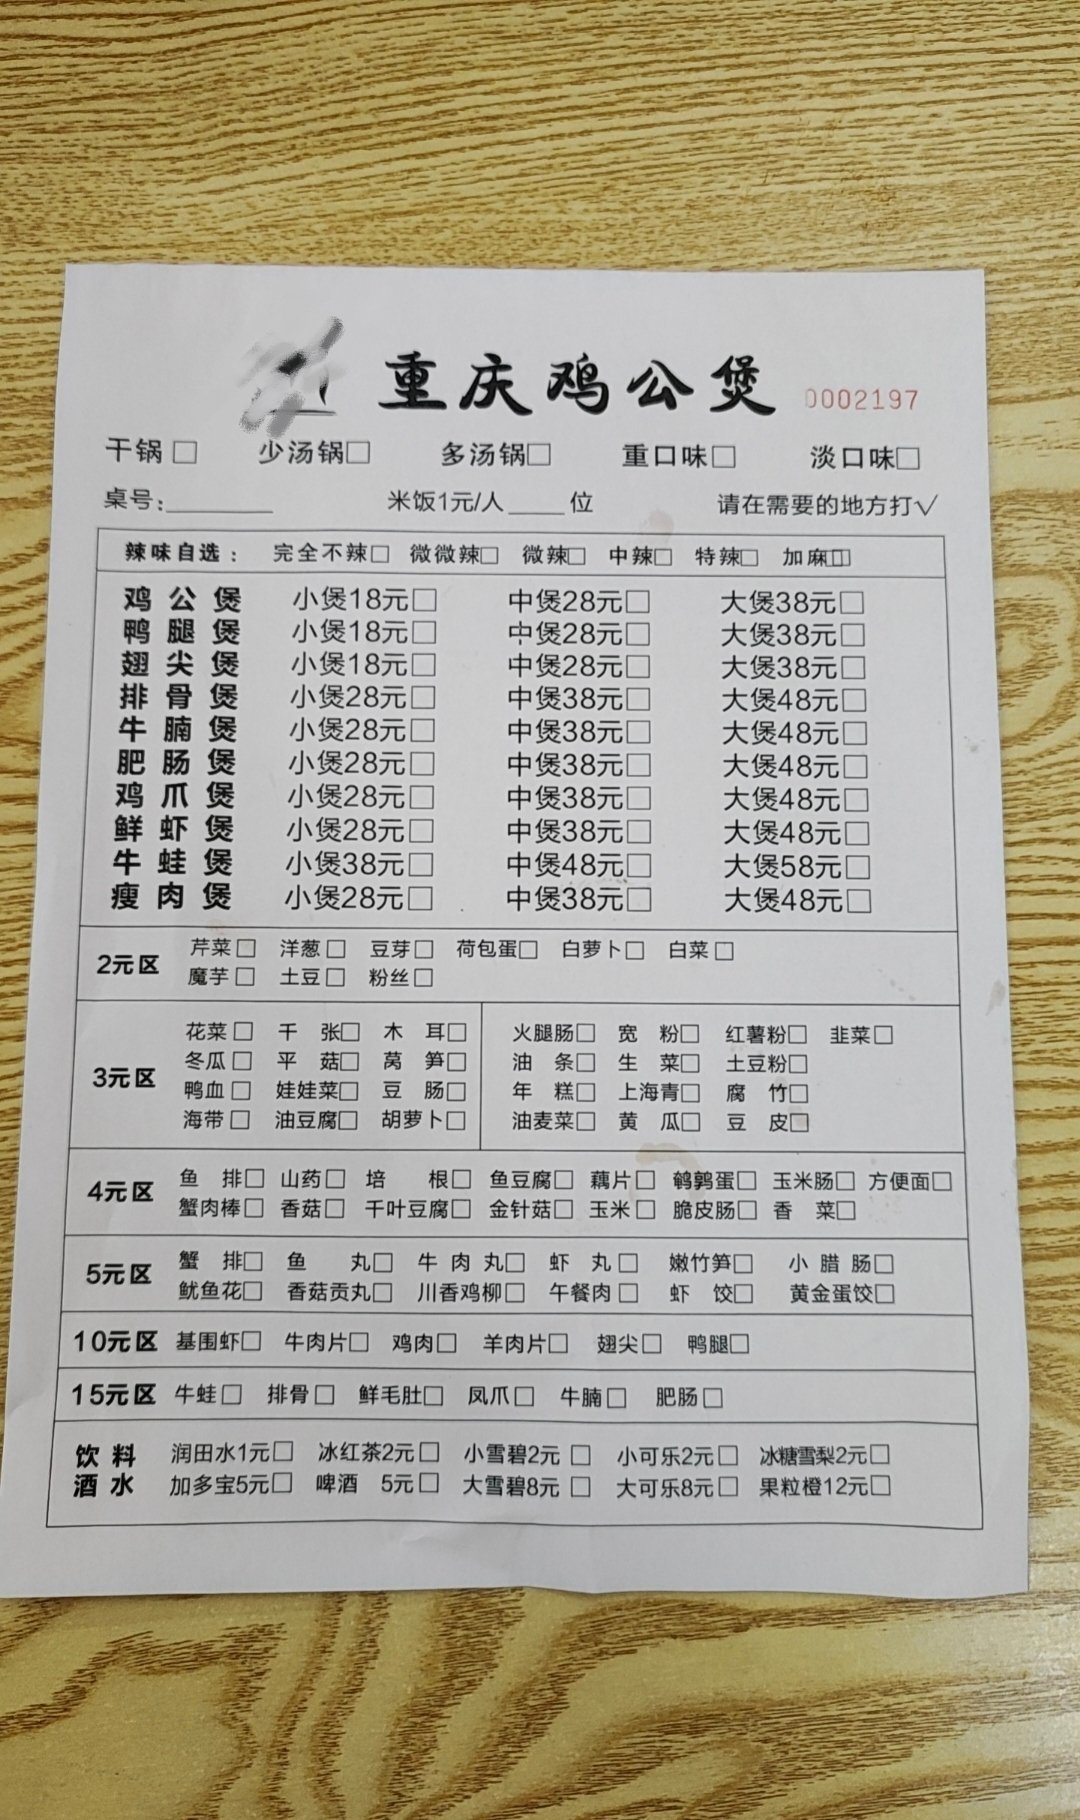 重庆鸡公煲 0002197
干锅□ 少汤锅□ 多汤锅□ 重口味□ 淡口味□
桌号:______ 米饭1元/人____位 请在需要的地方打√
辣味自选： 完全不辣□ 微微辣□ 微辣□ 中辣□ 特辣□ 加麻□
鸡公煲 小煲18元□ 中煲28元□ 大煲38元□
鸭腿煲 小煲18元□ 中煲28元□ 大煲38元□
翅尖煲 小煲18元□ 中煲28元□ 大煲38元□
排骨煲 小煲28元□ 中煲38元□ 大煲48元□
牛腩煲 小煲28元□ 中煲38元□ 大煲48元□
肥肠煲 小煲28元□ 中煲38元□ 大煲48元□
鸡爪煲 小煲28元□ 中煲38元□ 大煲48元□
鲜虾煲 小煲28元□ 中煲38元□ 大煲48元□
牛蛙煲 小煲38元□ 中煲48元□ 大煲58元□
瘦肉煲 小煲28元□ 中煲38元□ 大煲48元□
2元区
芹菜□ 洋葱□ 豆芽□ 荷包蛋□ 白萝卜□ 白菜□
魔芋□ 土豆□ 粉丝□
3元区
花菜□ 千张□ 木耳□
冬瓜□ 平菇□ 莴笋□
鸭血□ 娃娃菜□ 豆肠□
海带□ 油豆腐□ 胡萝卜□
火腿肠□ 宽粉□ 红薯粉□ 韭菜□
油条□ 生菜□ 土豆粉□
年糕□ 上海青□ 腐竹□
油麦菜□ 黄瓜□ 豆皮□
4元区
鱼排□ 山药□ 培根□ 鱼豆腐□ 藕片□ 鹌鹑蛋□ 玉米肠□ 方便面□
蟹肉棒□ 香菇□ 千叶豆腐□ 金针菇□ 玉米□ 脆皮肠□ 香菜□
5元区
蟹排□ 鱼丸□ 牛肉丸□ 虾丸□ 嫩竹笋□ 小腊肠□
鱿鱼花□ 香菇贡丸□ 川香鸡柳□ 午餐肉□ 虾饺□ 黄金蛋饺□
10元区 基围虾□ 牛肉片□ 鸡肉□ 羊肉片□ 翅尖□ 鸭腿□
15元区 牛蛙□ 排骨□ 鲜毛肚□ 凤爪□ 牛腩□ 肥肠□
饮料 润田水1元□ 冰红茶2元□ 小雪碧2元□ 小可乐2元□ 冰糖雪梨2元□
酒水 加多宝5元□ 啤酒 5元□ 大雪碧8元□ 大可乐8元□ 果粒橙12元□